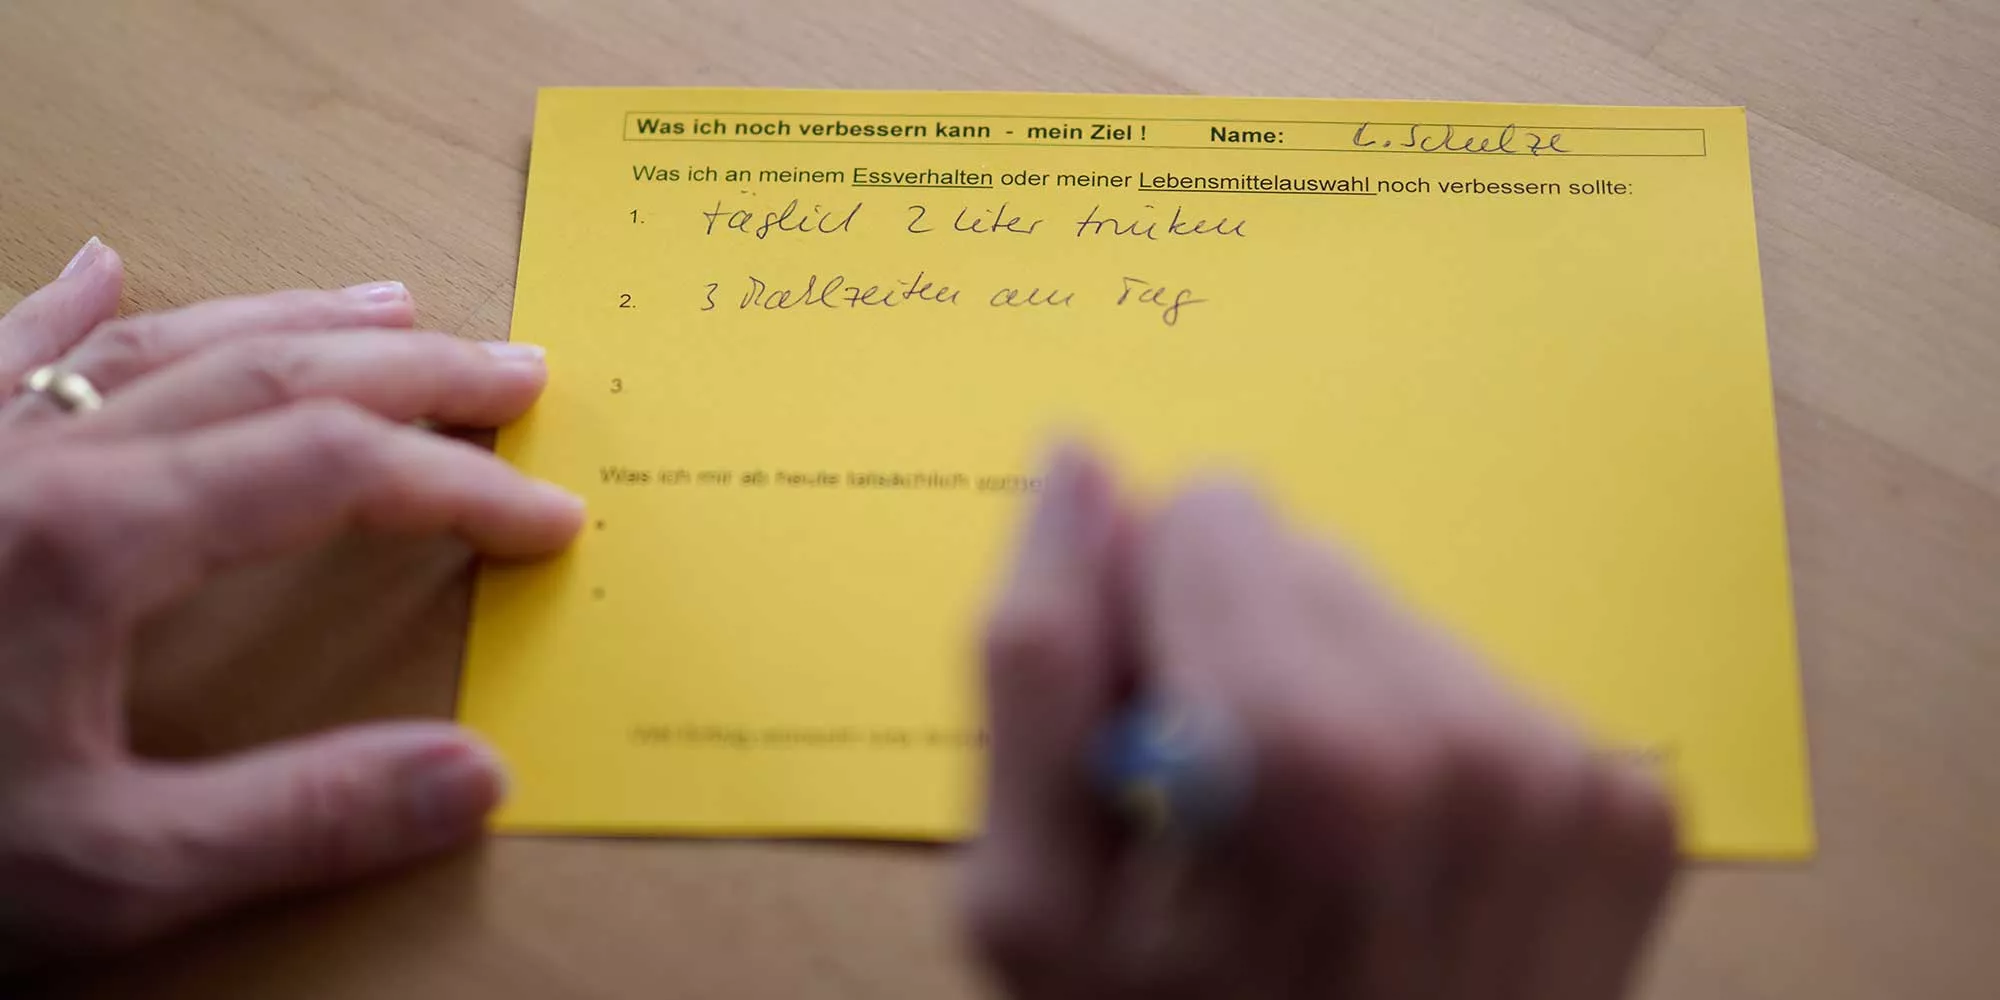 Was ich noch verbessern kann - mein Ziel ! Name: L. Schulze
Was ich an meinem Essverhalten oder meiner Lebensmittelauswahl noch verbessern sollte:
1. täglich 2 Liter trinken
2. 3 Mahlzeiten am Tag
3.
Was ich mir ab heute tatsächlich